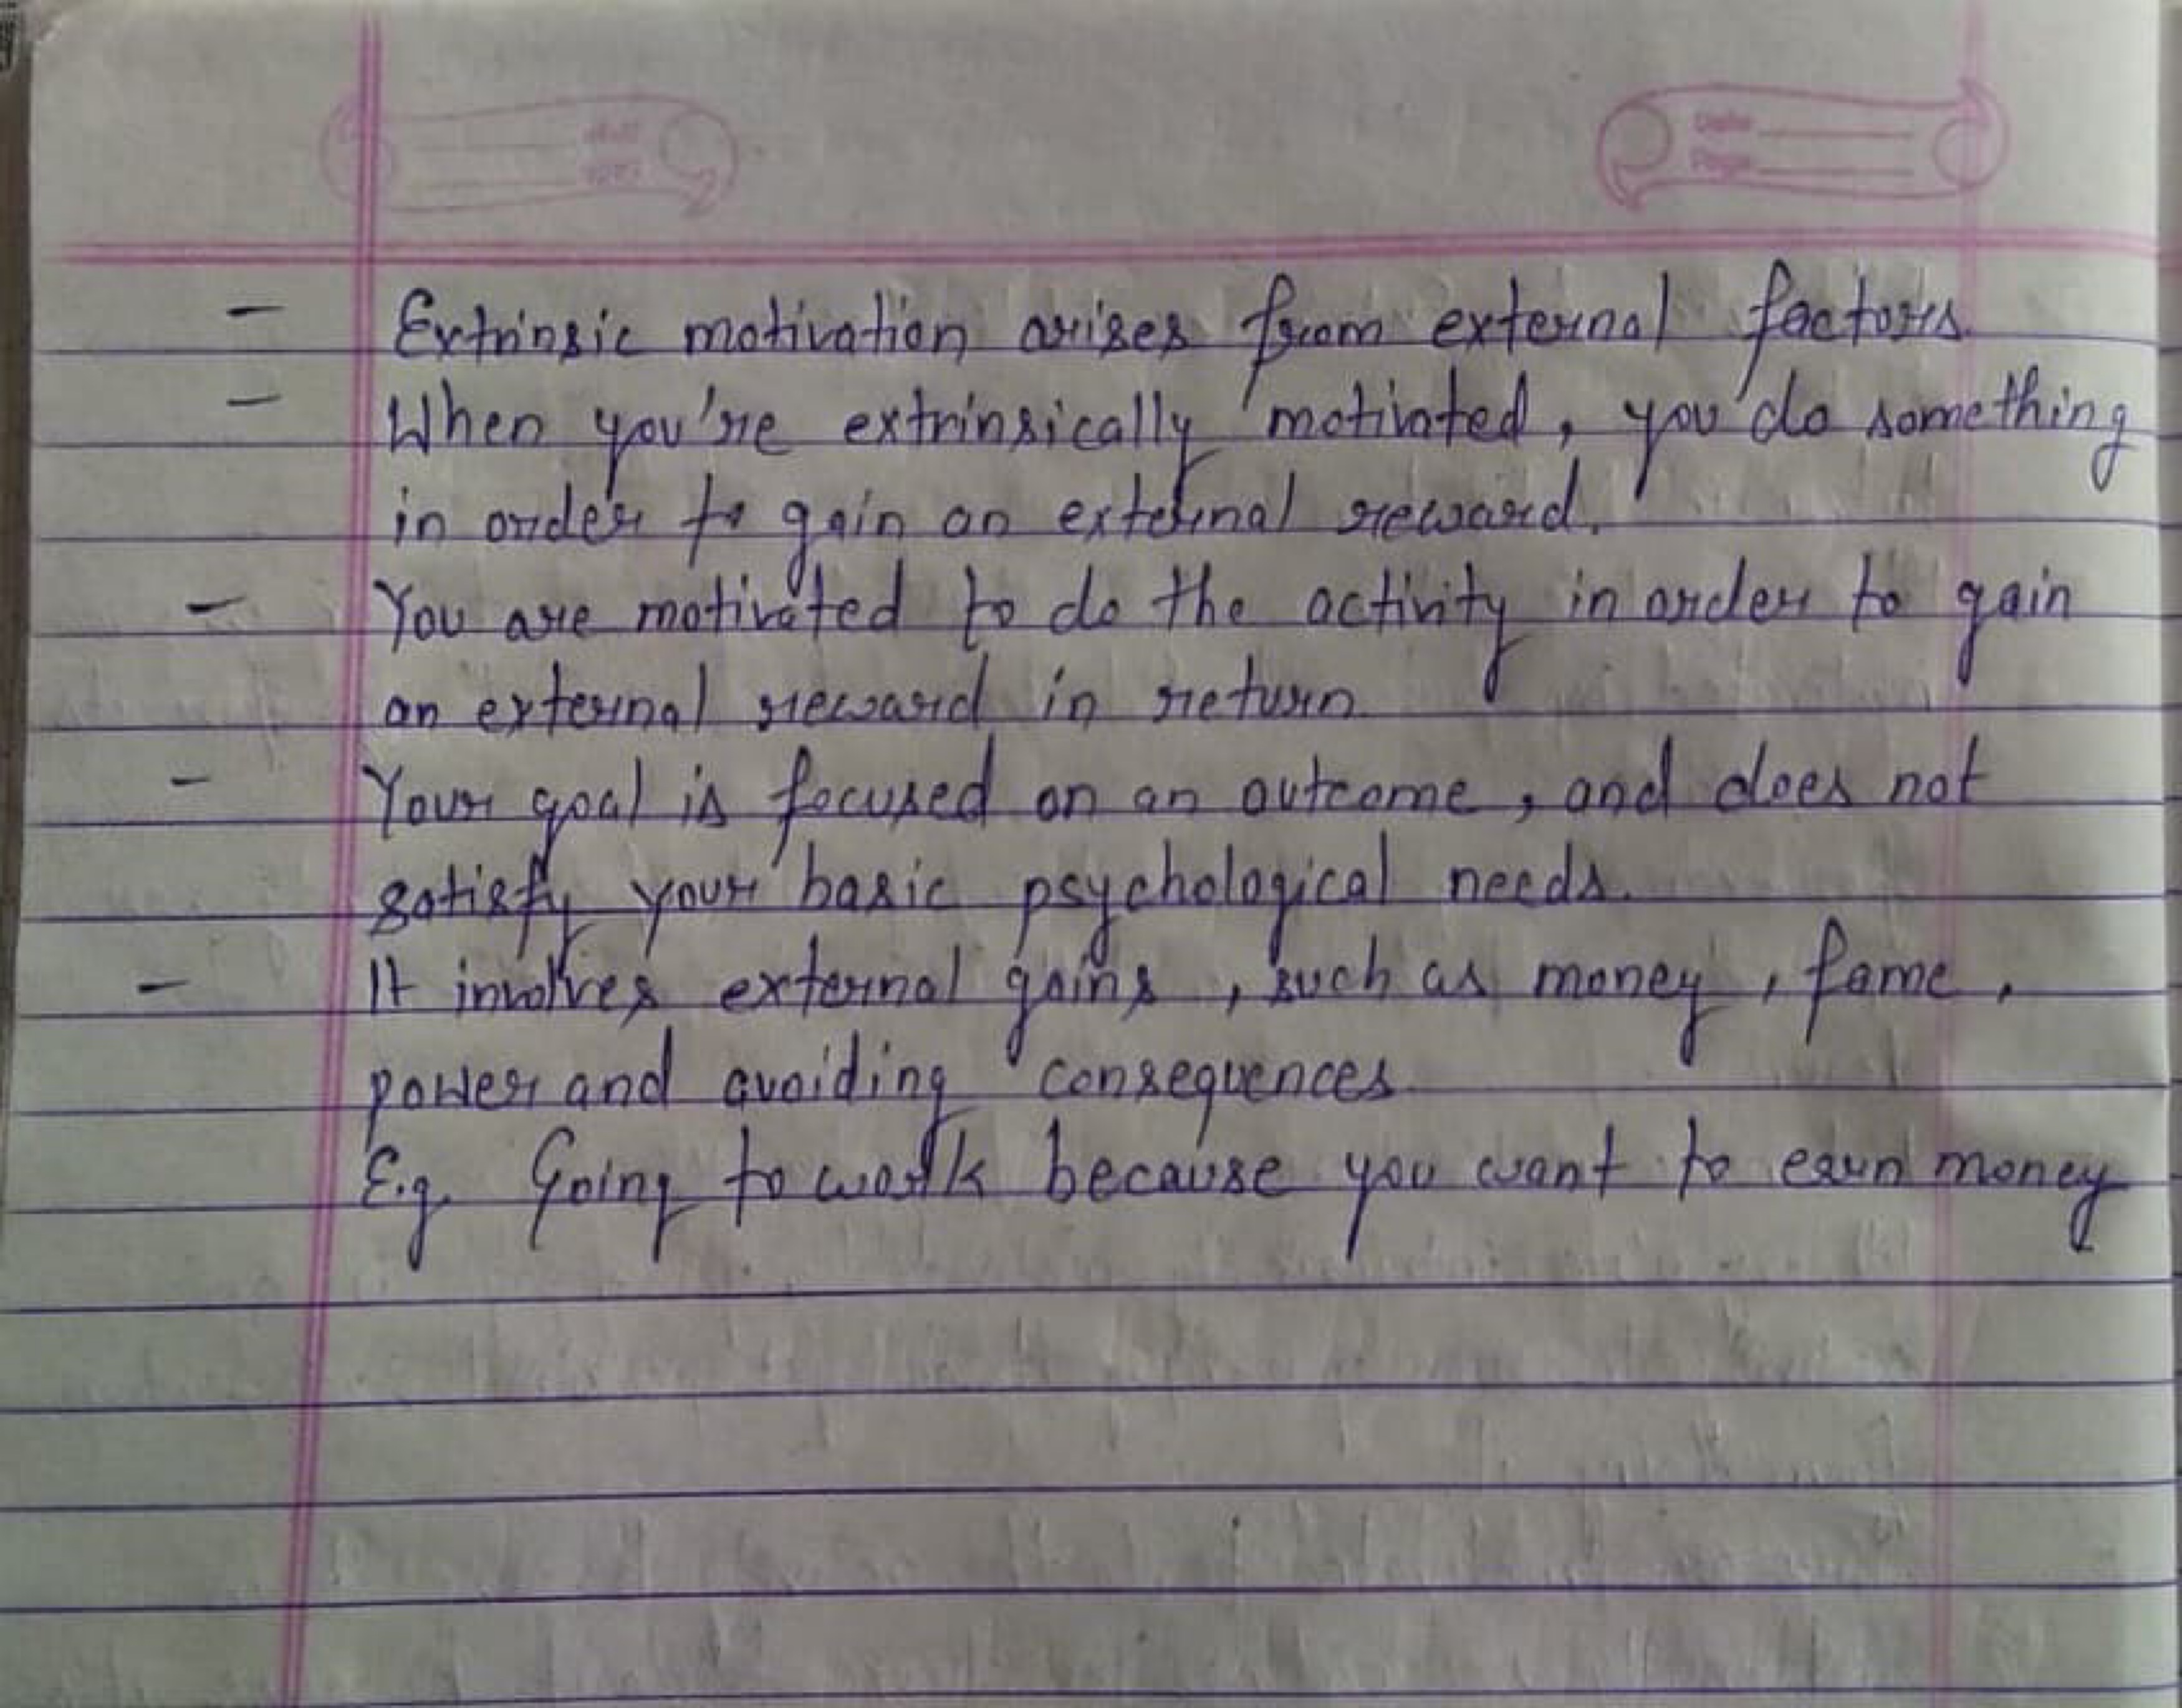 Date
Page
- Extrinsic motivation arises from external factors.
- When you're extrinsically motivated, you do something
in order to gain an external reward.
- You are motivated to do the activity in order to gain
an external reward in return
- Your goal is focused on an outcome, and does not
satisfy your basic psychological needs.
- It involves external gains, such as money, fame,
power and avoiding consequences
E.g. Going to work because you want to earn money